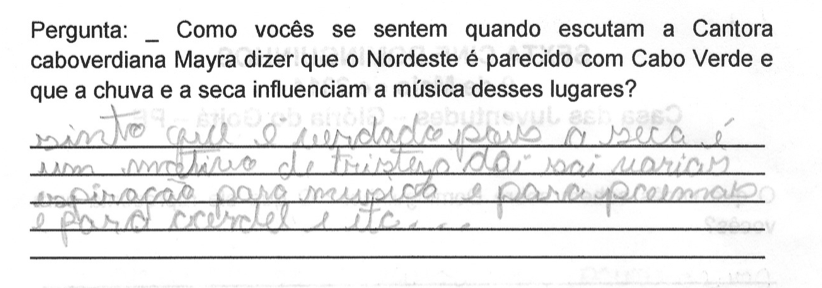 Pergunta: _ Como vocês se sentem quando escutam a Cantora
caboverdiana Mayra dizer que o Nordeste é parecido com Cabo Verde e
que a chuva e a seca influenciam a música desses lugares?
sinto que e verdade pois a seca é
um motivo de tristeza dai sai varias
espiração para musica e para poemas
e para cordel e itc....